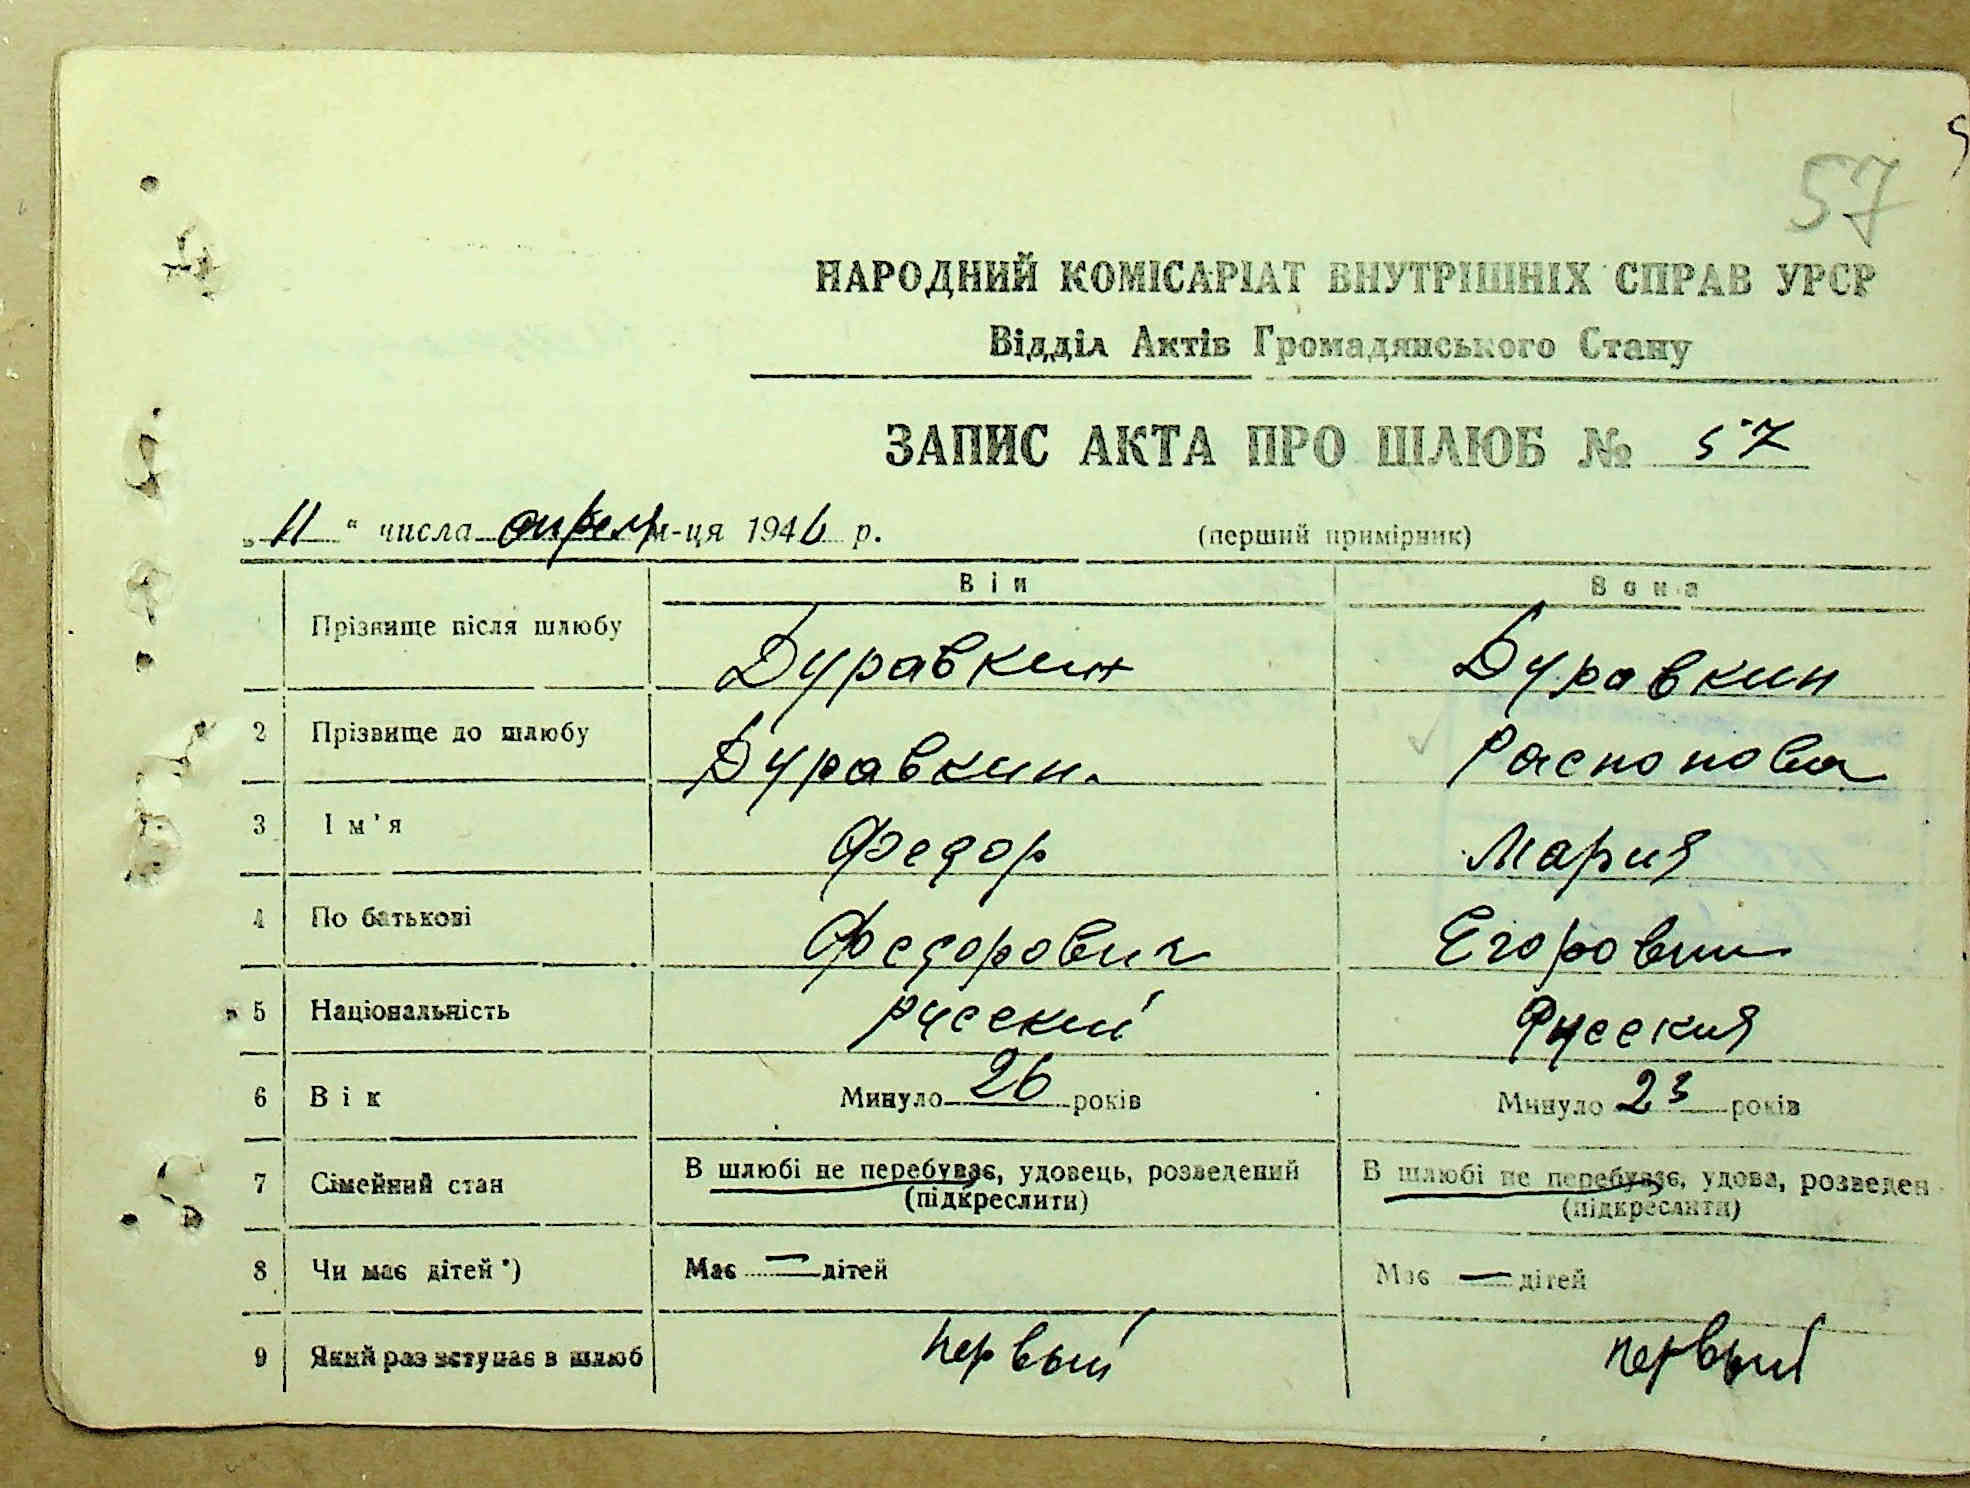 57
НАРОДНИЙ КОМІСАРІАТ ВНУТРІШНІХ СПРАВ УРСР
Відділ Актів Громадянського Стану
ЗАПИС АКТА ПРО ШЛЮБ № 57
„11“ числа апреля м-ця 1946 р. (перший примірник)
Він Вона
Прізвище після шлюбу Журавкин Журавкин
2 Прізвище до шлюбу Журавкин. Распопова
3 Ім'я Федор Мария
4 По батькові Федорович Егоровна
5 Національність русский Русския
6 Вік Минуло 26 років Минуло 23 років
7 Сімейний стан В шлюбі не перебуває, удовець, розведений В шлюбі не перебуває, удова, розведен
(підкреслити) (підкреслити)
8 Чи має дітей*) Має — дітей Має — дітей
9 Який раз вступає в шлюб первый первый